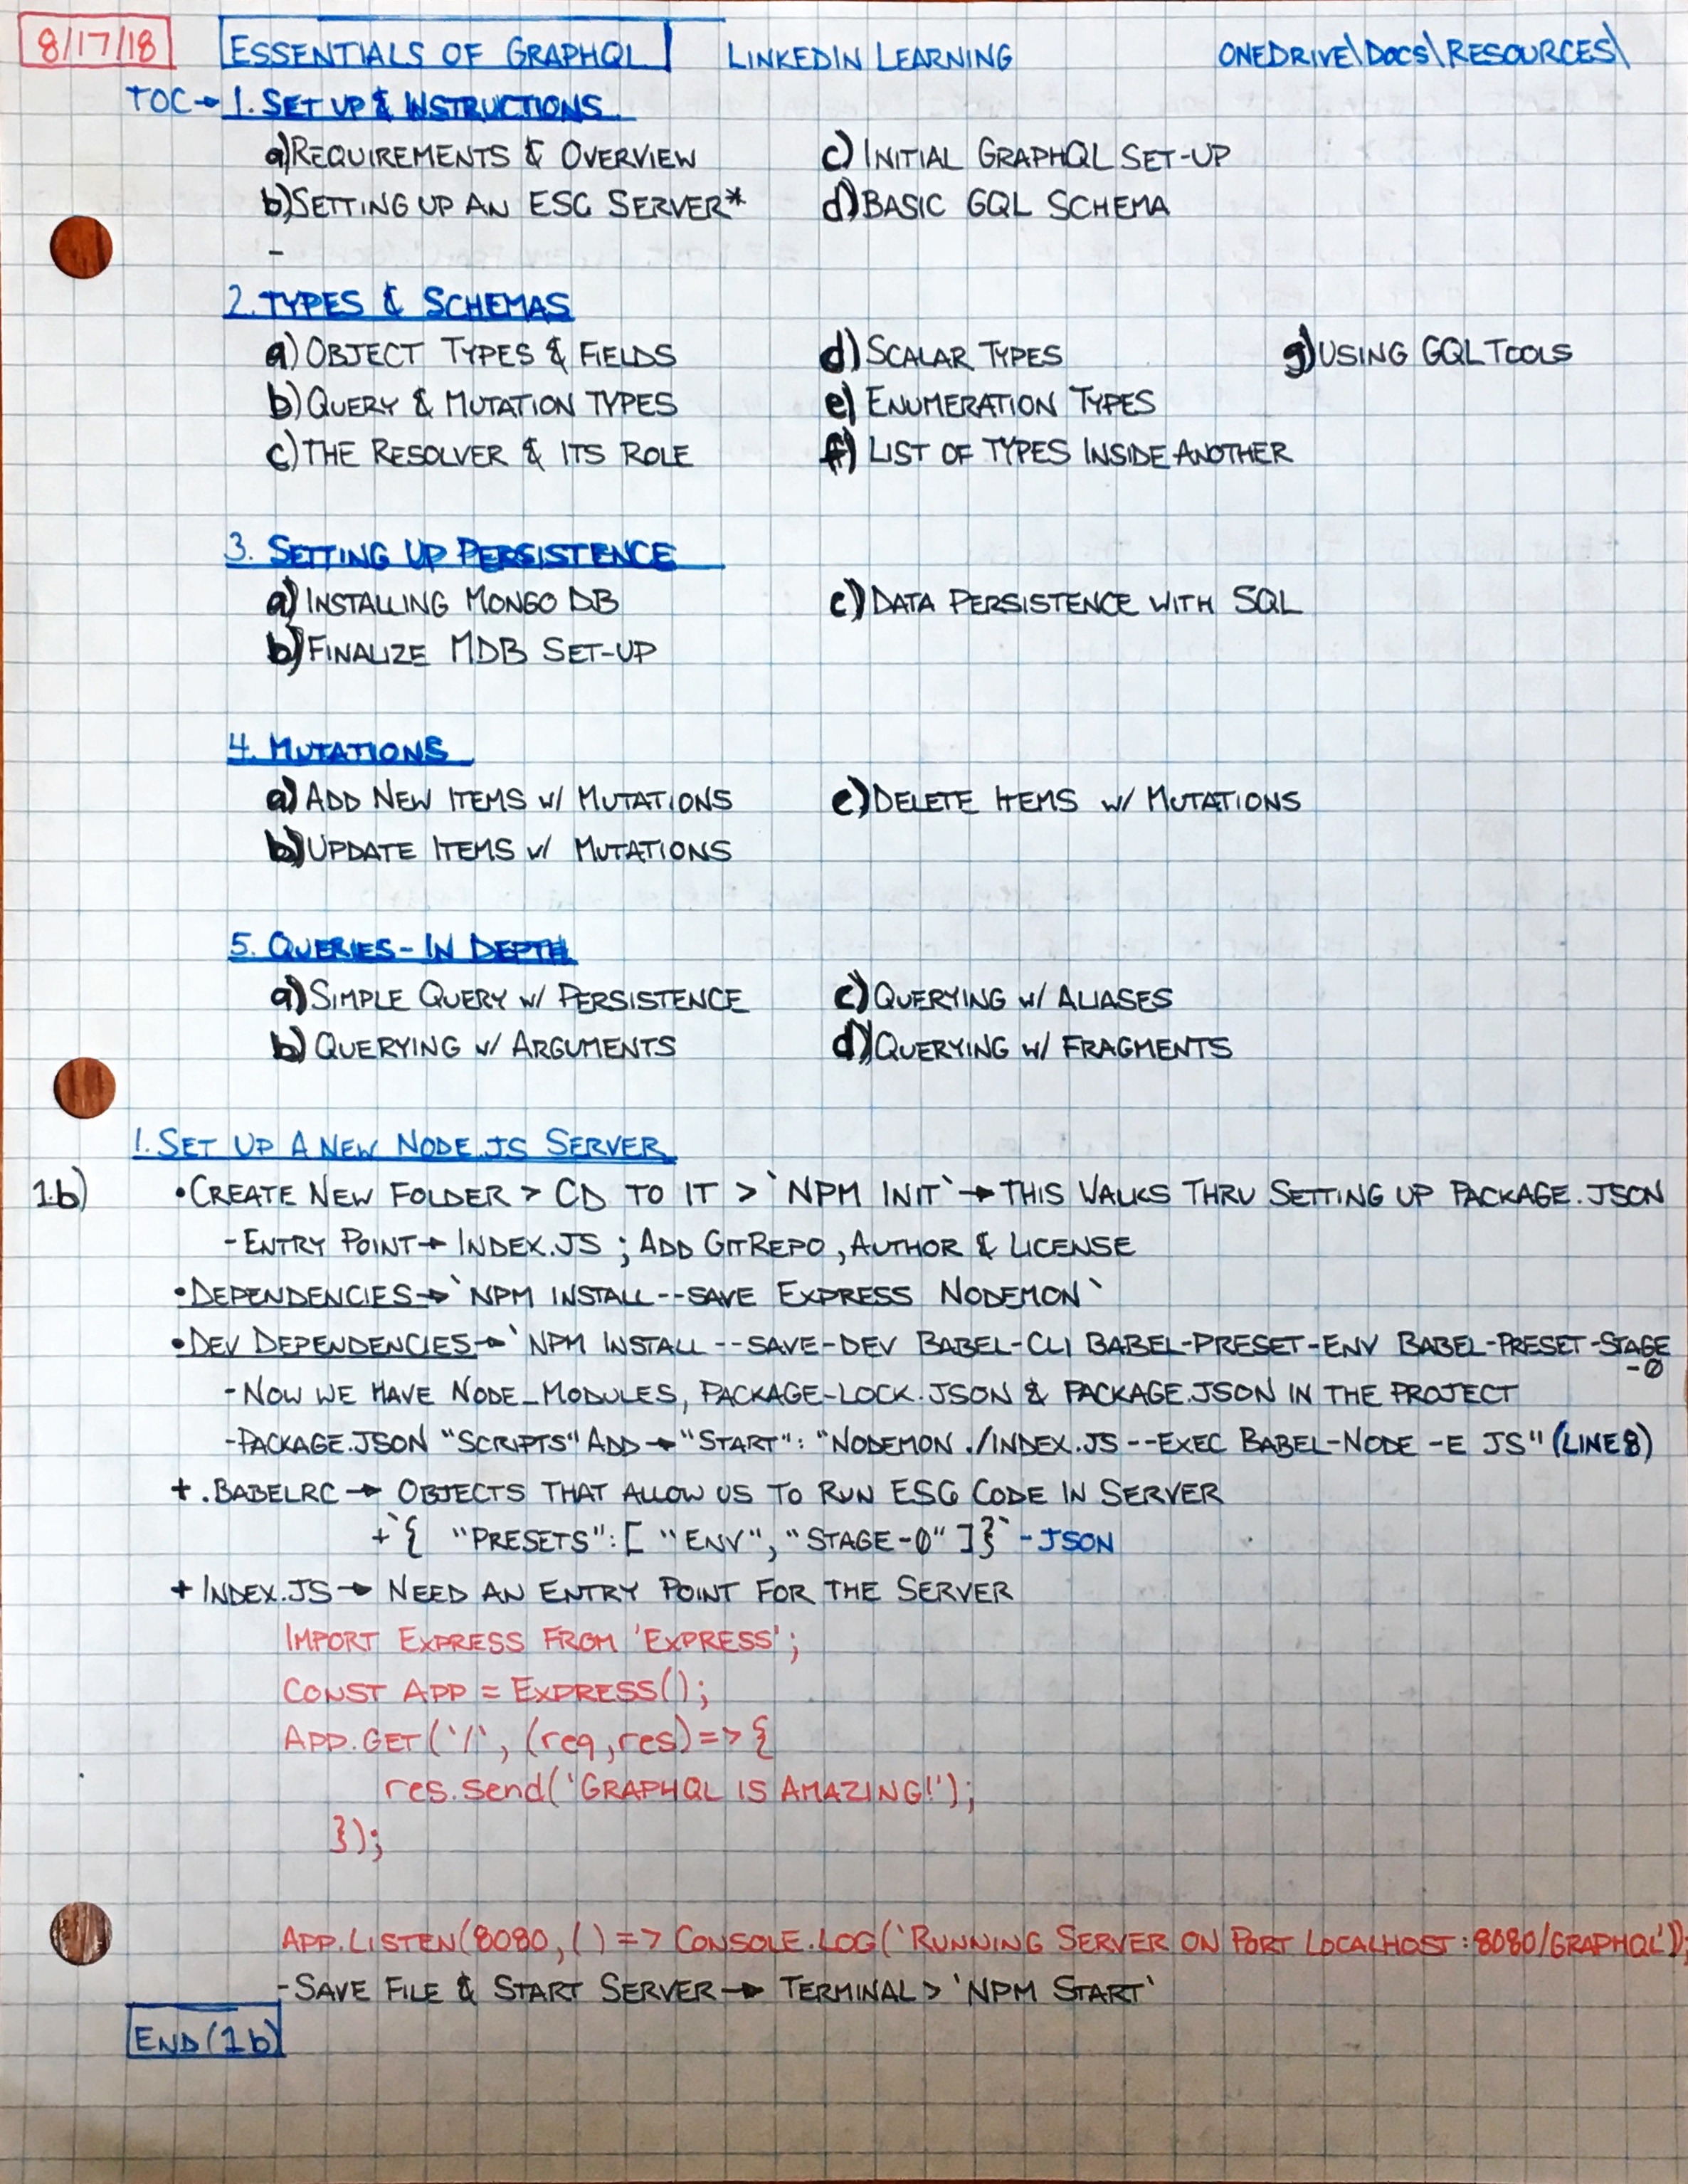 8/17/18 ESSENTIALS OF GRAPHQL LINKEDIN LEARNING ONEDRIVE\DOCS\RESOURCES\
TOC→ 1. SET UP & INSTRUCTIONS
a) REQUIREMENTS & OVERVIEW c) INITIAL GRAPHQL SET-UP
b) SETTING UP AN ES6 SERVER* d) BASIC GQL SCHEMA
-
2. TYPES & SCHEMAS
a) OBJECT TYPES & FIELDS d) SCALAR TYPES g) USING GQL TOOLS
b) QUERY & MUTATION TYPES e) ENUMERATION TYPES
c) THE RESOLVER & ITS ROLE f) LIST OF TYPES INSIDE ANOTHER
3. SETTING UP PERSISTENCE
a) INSTALLING MONGO DB c) DATA PERSISTENCE WITH SQL
b) FINALIZE MDB SET-UP
4. MUTATIONS
a) ADD NEW ITEMS W/ MUTATIONS c) DELETE ITEMS W/ MUTATIONS
b) UPDATE ITEMS W/ MUTATIONS
5. QUERIES - IN DEPTH
a) SIMPLE QUERY W/ PERSISTENCE c) QUERYING W/ ALIASES
b) QUERYING W/ ARGUMENTS d) QUERYING W/ FRAGMENTS
1. SET UP A NEW NODE.JS SERVER
1.b) •CREATE NEW FOLDER > CD TO IT > `NPM INIT` → THIS WALKS THRU SETTING UP PACKAGE.JSON
- ENTRY POINT → INDEX.JS ; ADD GITREPO, AUTHOR & LICENSE
•DEPENDENCIES → `NPM INSTALL --SAVE EXPRESS NODEMON`
•DEV DEPENDENCIES → `NPM INSTALL --SAVE-DEV BABEL-CLI BABEL-PRESET-ENV BABEL-PRESET-STAGE
-0
- NOW WE HAVE NODE_MODULES, PACKAGE-LOCK.JSON & PACKAGE.JSON IN THE PROJECT
- PACKAGE.JSON "SCRIPTS" ADD → "START": "NODEMON ./INDEX.JS --EXEC BABEL-NODE -E JS" (LINE 8)
+ .BABELRC → OBJECTS THAT ALLOW US TO RUN ES6 CODE IN SERVER
+`{ "PRESETS": [ "ENV", "STAGE-0" ]}` - JSON
+ INDEX.JS → NEED AN ENTRY POINT FOR THE SERVER
IMPORT EXPRESS FROM 'EXPRESS';
CONST APP = EXPRESS();
APP.GET('/', (req,res)=>{
res.send('GRAPHQL IS AMAZING!');
});
APP.LISTEN(8080, () => CONSOLE.LOG('RUNNING SERVER ON PORT LOCALHOST:8080/GRAPHQL'));
- SAVE FILE & START SERVER → TERMINAL > 'NPM START'
END (1b)